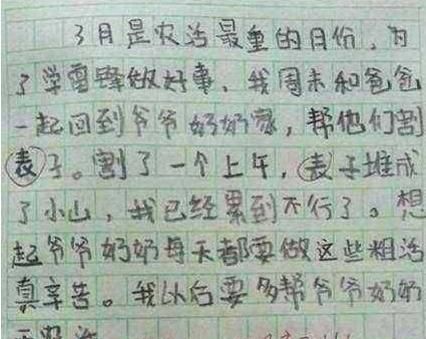 3月是农活最重的月份，为
了学雷锋做好事，我周末和爸爸
一起回到爷爷奶奶家，帮他们割
表子。割了一个上午，表子堆成
了小山，我已经累到不行了。想
起爷爷奶奶每天都要做这些粗活
真辛苦。我以后要多帮爷爷奶奶